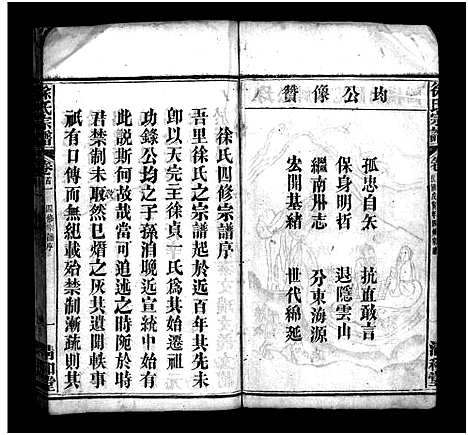 均公像贊
孤忠自矢 抗直敢言
保身明哲 退隱雲山
繼南州志 分東海源
宏開基緒 世代綿延
清和堂
徐氏宗譜
徐氏四修宗譜序
吾里徐氏之宗譜起於近百年其先未
卽以天完王徐貞一氏爲其始遷祖
功錄公均之于孫泊晚近宣統中始有
此說斯何故哉當可追述之時阨於有
君禁制未敢然已熸之灰其遺聞軼事
祇有口傳而無紀載殆禁制漸疏則其
徐氏宗譜
卷首
四修宗譜序
一
清和堂